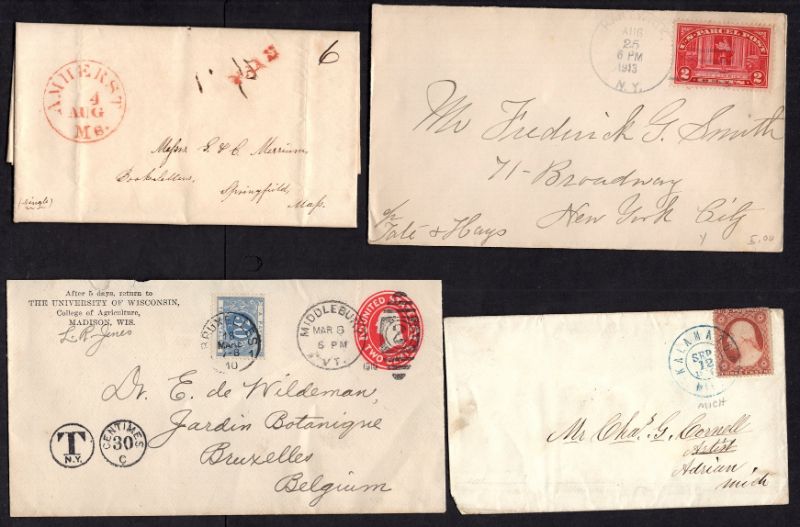 AMHERST
4
AUG
Me.
6
Messr G. & C. Merriam
Booksellers,
Springfield,
Mass.
(single)
AUG
25
6 PM
1913
N.Y.
U.S. PARCEL POST
2 2
CENTS
Mr Frederick G. Smith
71 - Broadway
New York City
c/o
Tate & Hays
5.00
After 5 days, return to
THE UNIVERSITY OF WISCONSIN,
College of Agriculture,
MADISON, WIS.
L. R. Jones
BRUXELLES
10
MIDDLEBURY
MAR 8
6 PM
VT.
1910
UNITED
2
TWO
Dr. E. de Wildeman,
Jardin Botanique
Bruxelles
Belgium
T
N.Y.
CENTIMES
30
C
SEP
12
MICH
Mr Chas. G. Cornell
Artist
Adrian,
Mich